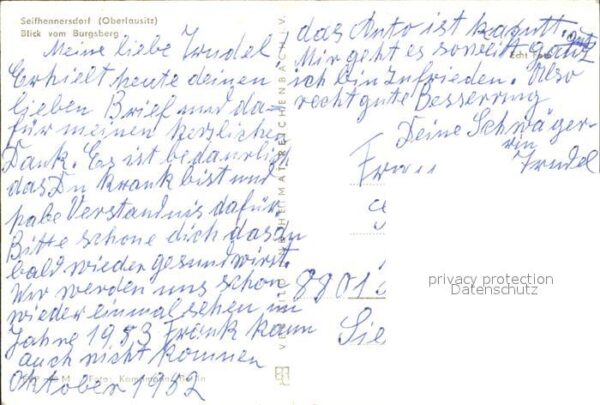 Seifhennersdorf (Oberlausitz)
Blick vom Burgsberg
Meine liebe Trudel!
Erhielt heute deinen
lieben Brief und da
für meinen herzlichen
Dank. Es ist bedauerlich
das Du krank bist und
habe Verständnis dafür.
Bitte schone dich das du
bald wieder gesund wirst.
Wir werden uns schon
wieder einmal sehen im
Jahre 1983 Frank kann
auch nicht kommen
Oktober 1982
das Auto ist kaputt.
Mir geht es soweit ganz gut
ich bin zufrieden. Also
recht gute Besserung
Deine Schwäger-
rin Trudel
Echt Foto
VERLAG HEIMAT REICHENBACH V.
Foto: Kampmann, Berlin
Frau
8801
Sie
privacy protection
Datenschutz